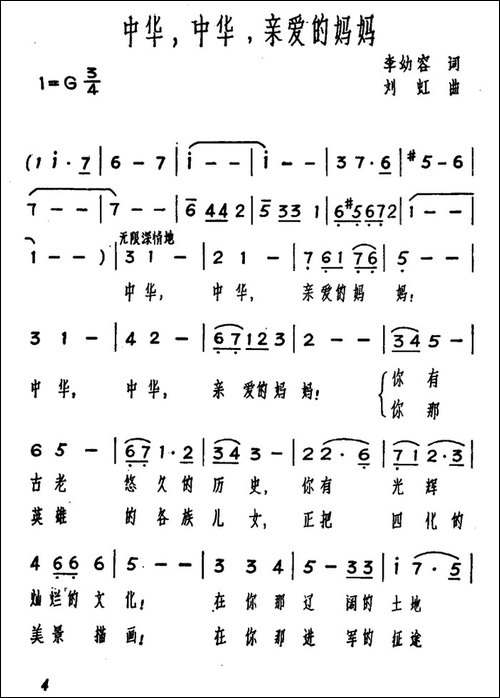 中华,中华,亲爱的妈妈
李幼容 词
1=G 3/4
刘虹 曲
(1 i· 7 | 6 - 7 | i - - | i - - | 3 7· 6 | #5 - 6 |
7 - - | 7 - - | 6 4 4 2 | 5 3 3 1 | 6 #5 6 7 2 | 1 - - |
无限深情地
1 - - ) | 3 1 - | 2 1 - | 7 6 1 7 6 | 5 - - |
中华, 中华, 亲爱的妈妈!
3 1 - | 4 2 - | 6 7 1 2 3 | 2 - - | 3 4 5 |
中华, 中华, 亲爱的妈妈! 你有
你那
6 5 - | 6 7 1· 2 | 3 4 3 - | 2 2· 6 | 7 1 2·3 |
古老 悠久的 历史, 你有 光辉
英雄 的各族 儿女, 正把 四化的
4 6 6 6 | 5 - - | 3 3 4 | 5 - 3 3 | i 7· 5 |
灿烂的文化! 在你那辽阔的土地
美景描画! 在你那进军的征途
4